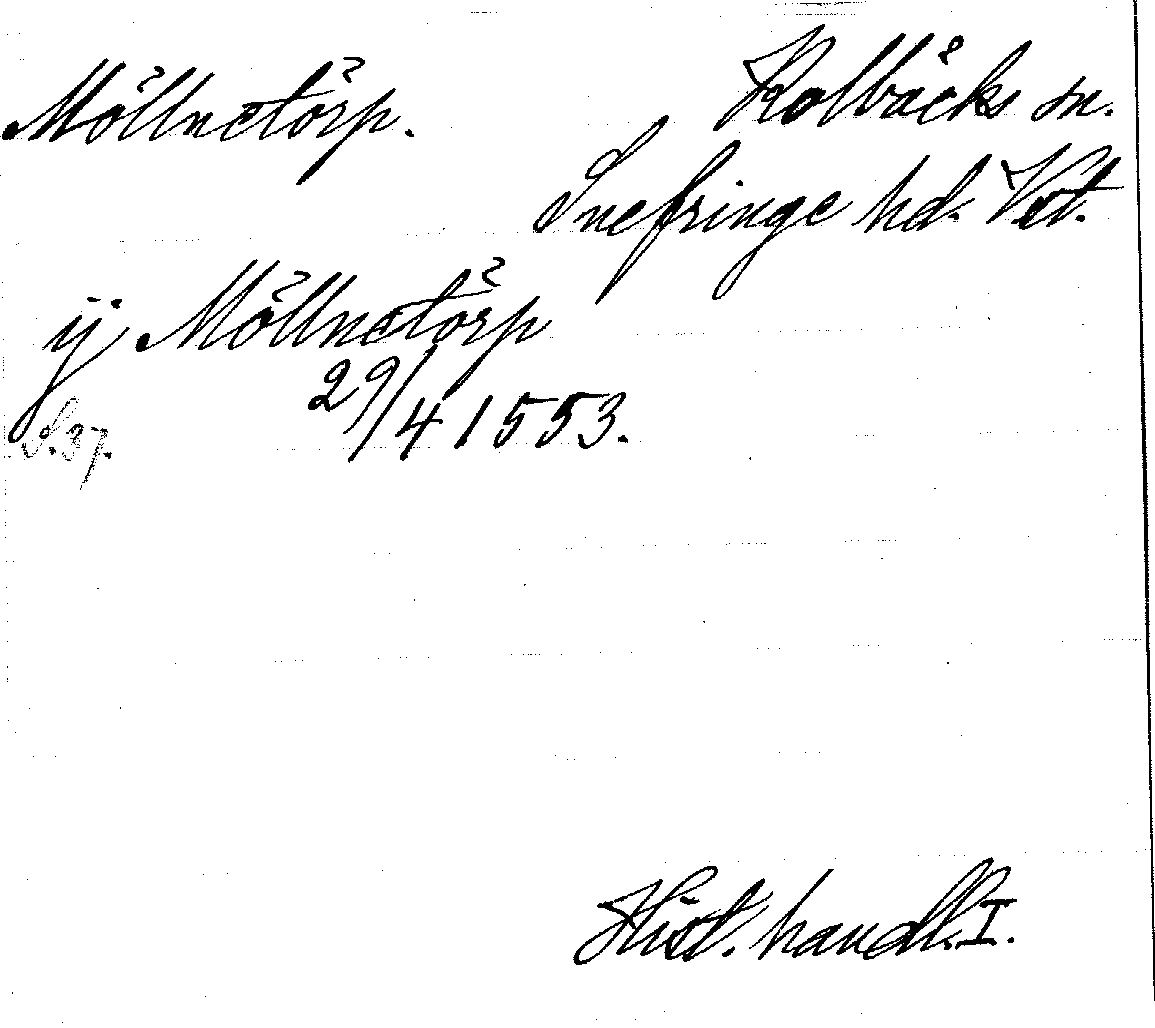 Möllnetörp.
Kolbäcks sn.
Snefringe hd. Vstm.
ij Möllnetörp
29/4 1553.
S.37.
Hist. handl. I.